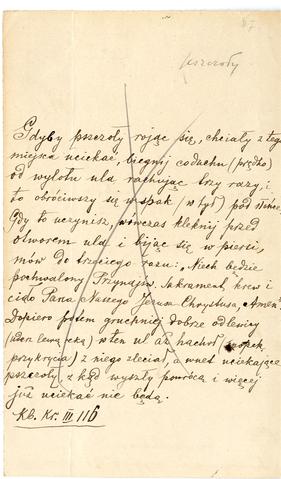 pszczoły
Gdyby pszczoły rojąc się, chciały z tego
miejsca uciekać, biegnij coduchu (prędko)
od wylotu ula rachując trzy razy, i
to obróciwszy się wspak (w tył) pod słońce.
Gdy to uczynisz, wówczas klęknij przed
otworem ula i bijąc się w piersi,
mów do trzeciego razu: „Niech będzie
pochwalony Przynajśw. Sakrament, krew i
ciało Pana Naszego Jezusa Chrystusa, Amen".
Dopiero potem gruchnij dobrze odlewicy
(uderz lewą ręką) w ten ul aż nachvst (czopek,
przykrycia) z niego zleciał, a wnet uciekające
pszczoły, z kąd wyszły powrócą i więcej
już uciekać nie będą.
Kb. Kr. III 116